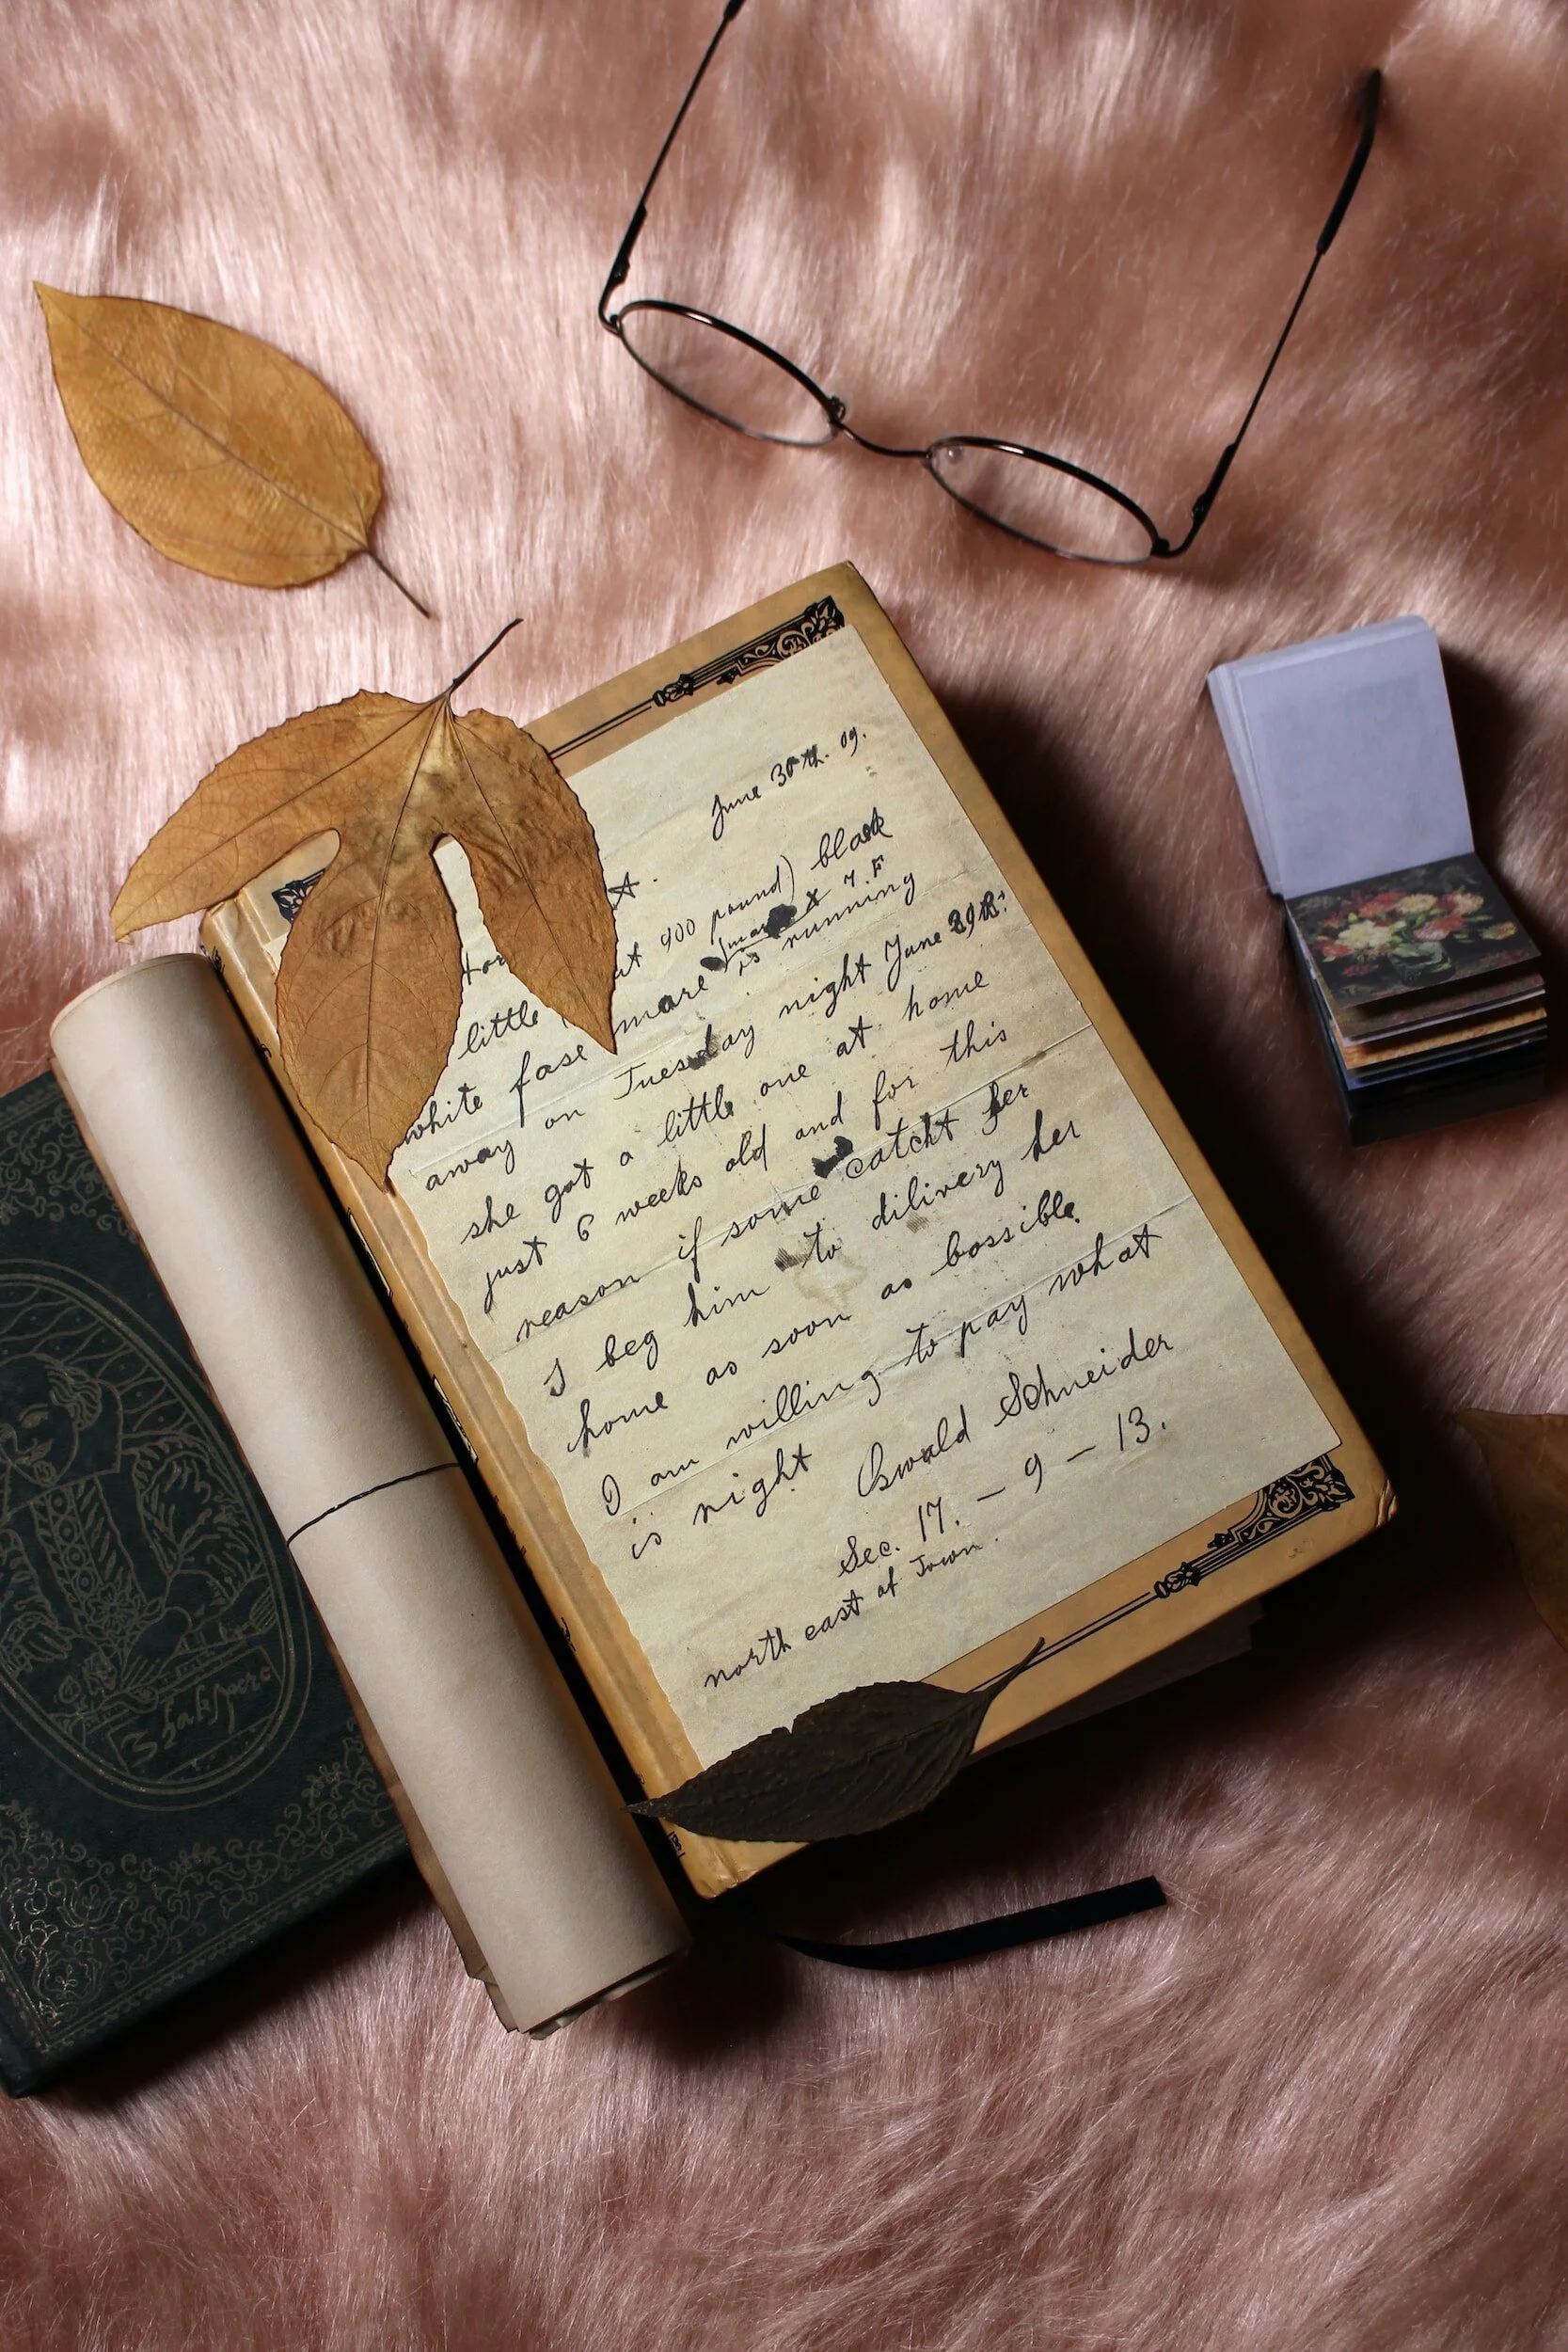 June 30th. 09.
little 900 pound) black
white fase mare is running
away on Tuesday night June 29th:
she got a little one at home
just 6 weeks old and for this
reason if some catcht her
I beg him to dilivery her
home as soon as bossible.
I am willing to pay what
is right Oswald Schneider
Sec. 17. – 9 – 13.
north east of Town.